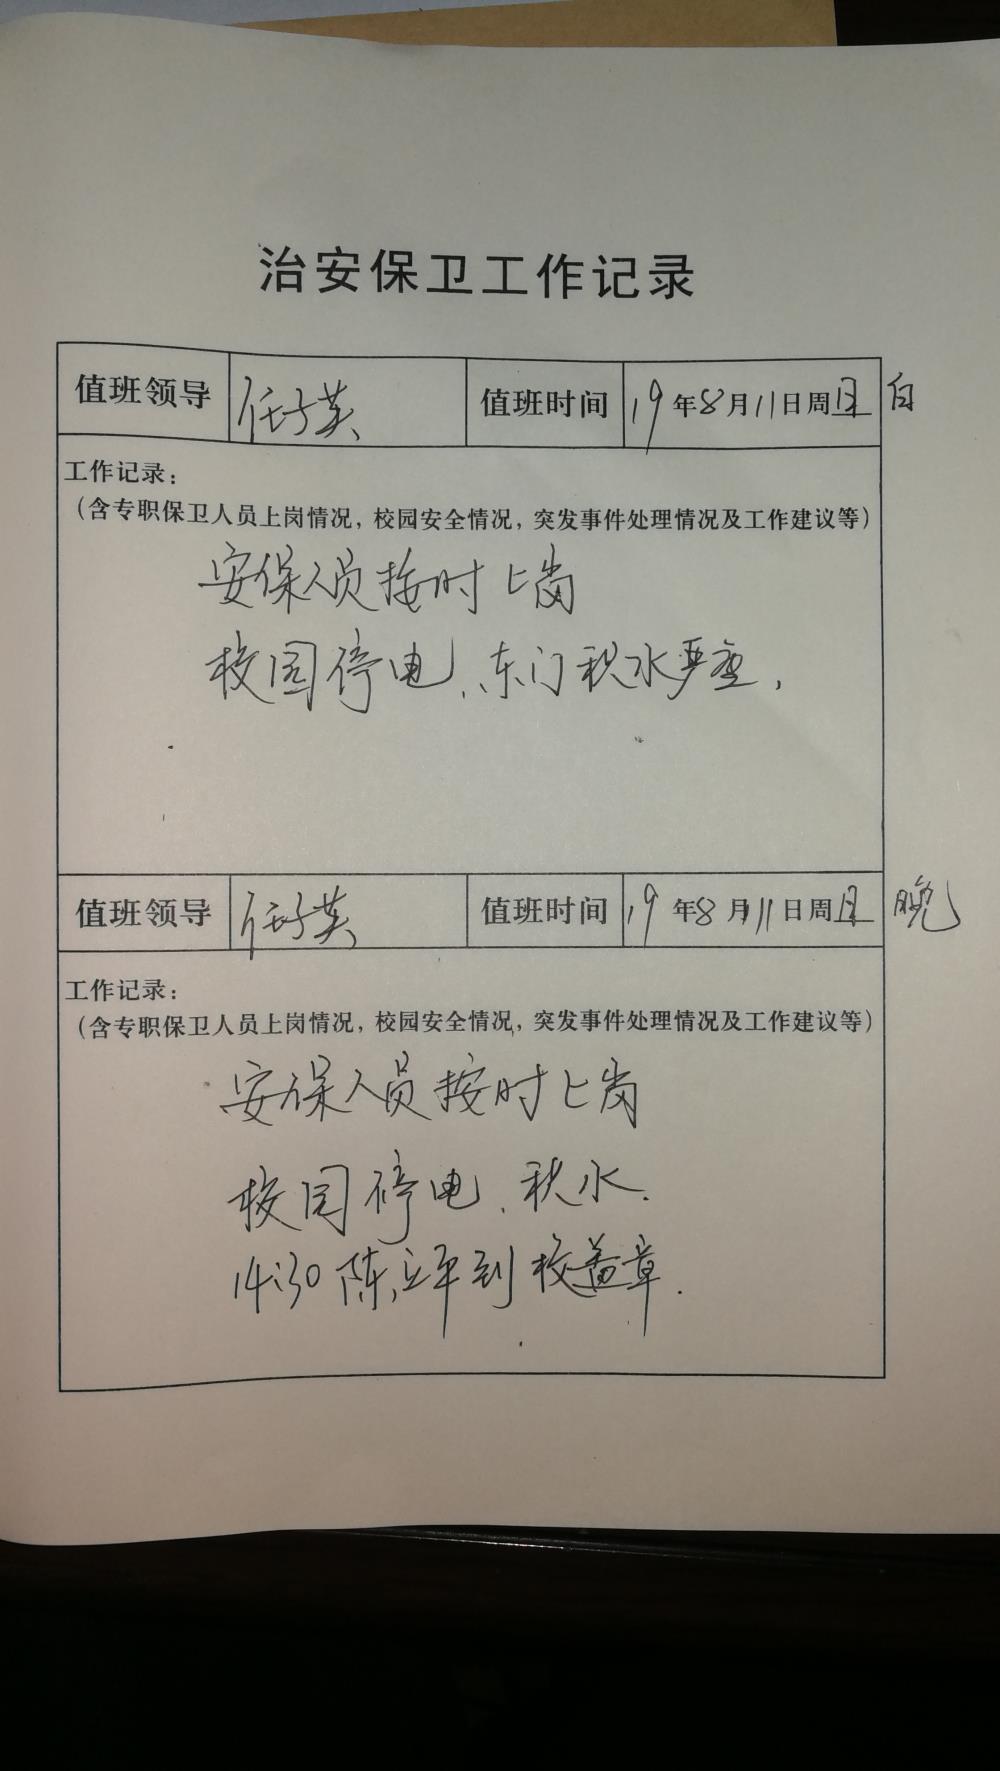 治安保卫工作记录
值班领导 任子英 值班时间 19年8月11日周日 白
工作记录：
（含专职保卫人员上岗情况，校园安全情况，突发事件处理情况及工作建议等）
安保人员按时上岗
校园停电、东门积水严重，
值班领导 任子英 值班时间 19年8月11日周日 晚
工作记录：
（含专职保卫人员上岗情况，校园安全情况，突发事件处理情况及工作建议等）
安保人员按时上岗
校园停电、积水.
14:30 陈立平到校盖章.